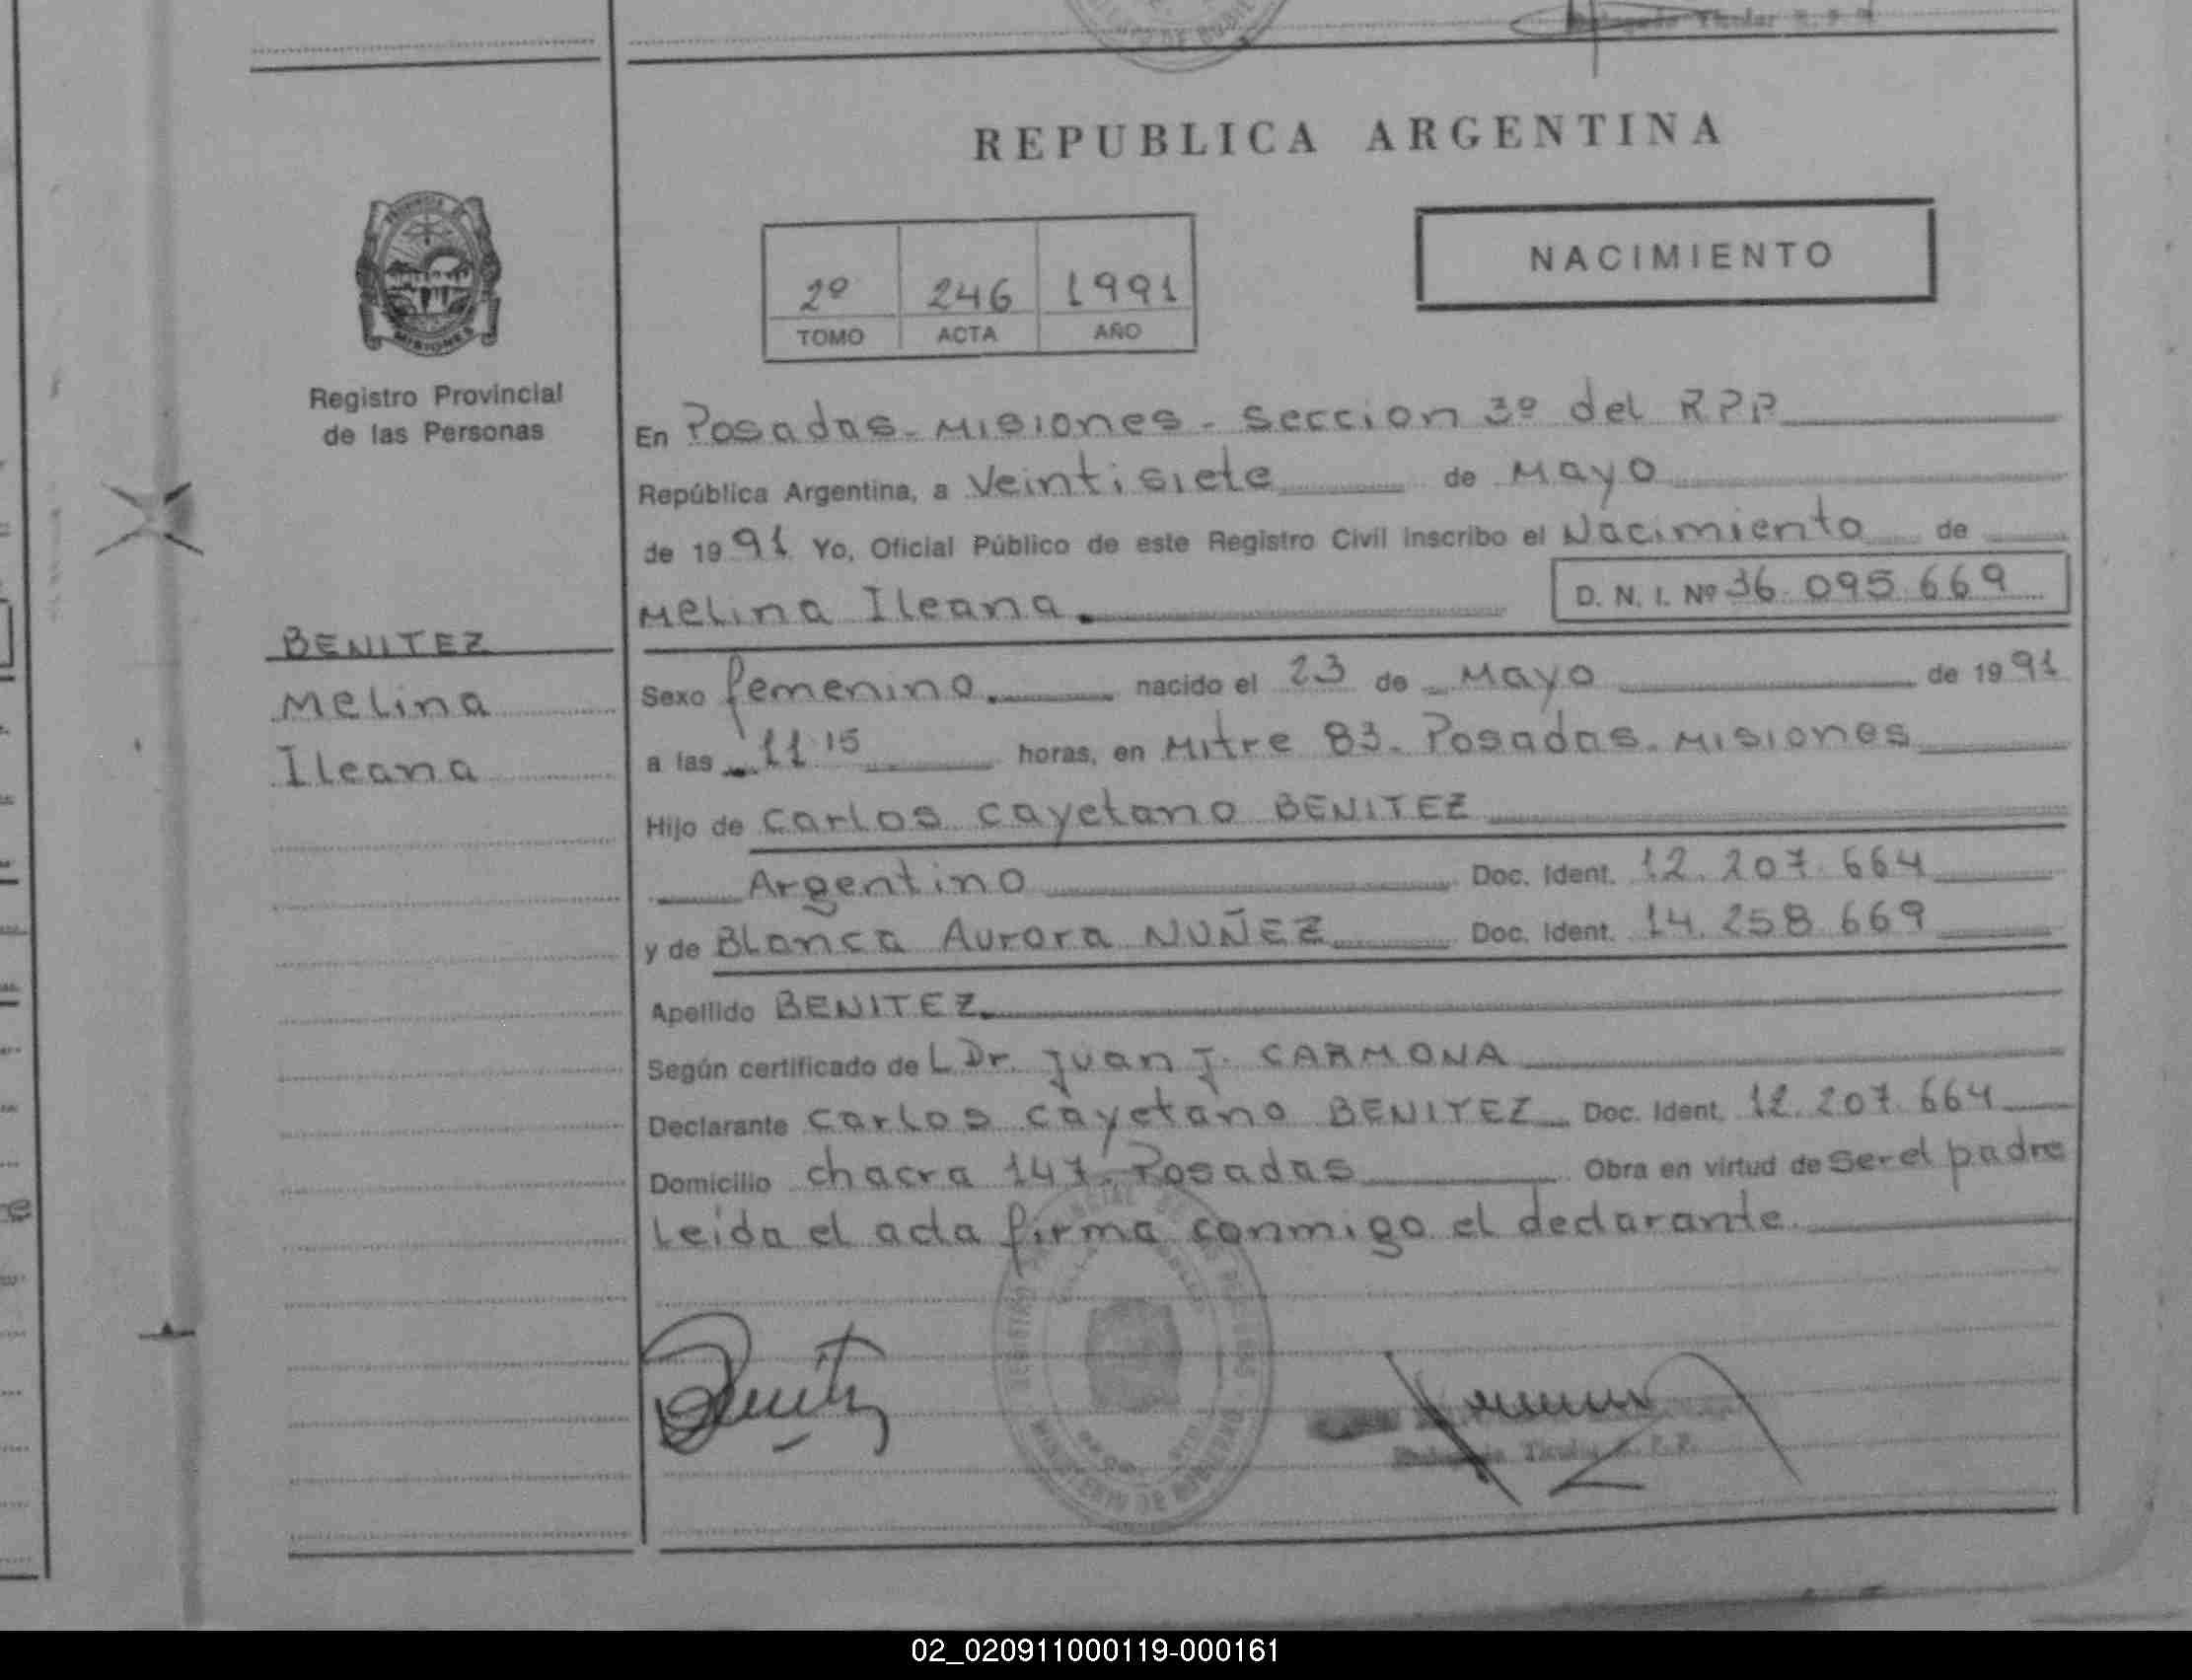 REPUBLICA ARGENTINA
NACIMIENTO
2º 246 1991
TOMO ACTA AÑO
Registro Provincial
de las Personas
BENITEZ
Melina
Ileana
En Posadas - Misiones - Seccion 3º del RPP
República Argentina, a Veintisiete de Mayo
de 1991 Yo, Oficial Público de este Registro Civil inscribo el Nacimiento de
Melina Ileana. D. N. I. Nº 36.095.669
Sexo femenino. nacido el 23 de Mayo de 1991
a las 11.15 horas, en Mitre 83. Posadas. Misiones
Hijo de Carlos Cayetano BENITEZ
Argentino Doc. Ident. 12.207.664
y de Blanca Aurora NUÑEZ Doc. Ident. 14.258.669
Apellido BENITEZ.
Según certificado de L Dr. Juan J. CARMONA
Declarante Carlos Cayetano BENITEZ Doc. Ident. 12.207.664
Domicilio chacra 147. Posadas Obra en virtud de Ser el padre
Leida el acta firma conmigo el declarante.
MINISTERIO DE GOBIERNO
02_020911000119-000161